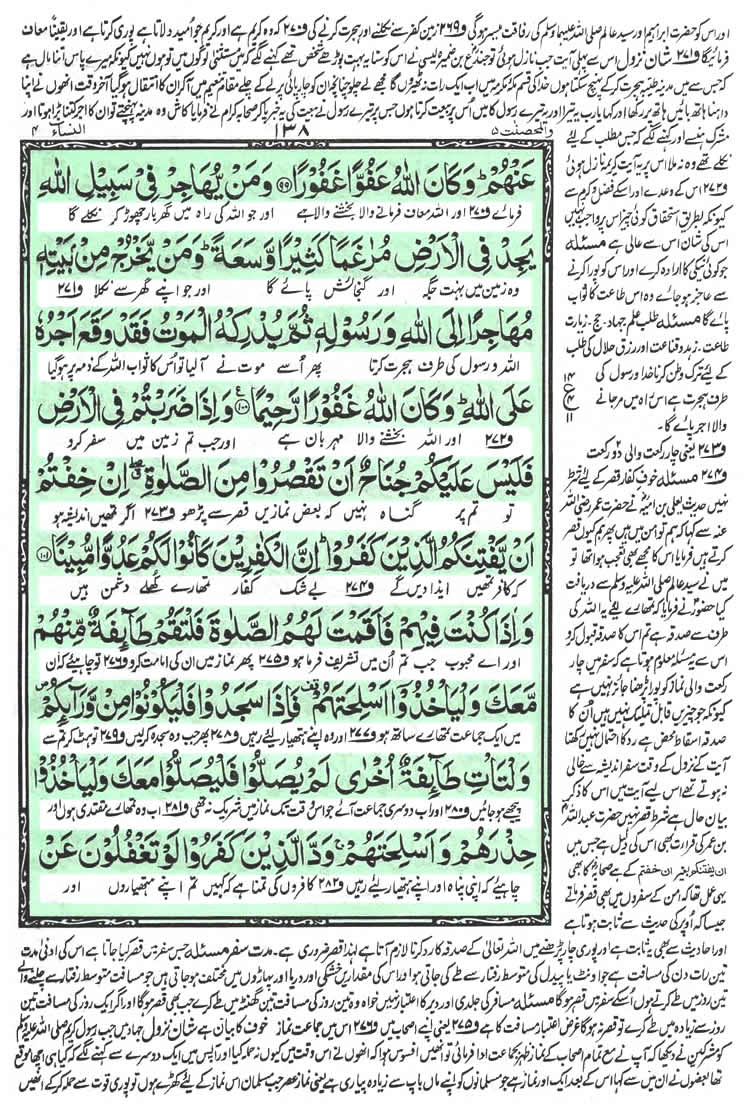 اور اس کو حضرت ابراہیم اور سید عالم صلی اللہ علیہما وسلم کی رفاقت میسر ہوگی و۲۶۹ زمین کفر سے نکلنے اور ہجرت کرنے کی و۲۷۰ کہ وہ کریم ہے اور کریم جو امید دلاتا ہے پوری کرتا ہے اور یقیناً معاف
فرمائے گا و۲۷۱ شان نزول اس سے پہلی آیت جب نازل ہوئی تو جندع بن ضمرہ لیثی نے اس کو سنا یہ بہت بوڑھے شخص تھے کہنے لگے کہ میں مستثنیٰ لوگوں میں تو ہوں نہیں کیونکہ میرے پاس اتنا مال ہے
کہ جس سے میں مدینہ طیبہ ہجرت کرکے پہنچ سکتا ہوں خدا کی قسم مکہ مکرمہ میں اب ایک رات نہ ٹھہروں گا مجھے لے چلو چنانچہ ان کو چارپائی پر لے کے چلے مقام تنعیم میں آکر ان کا انتقال ہوگیا آخر وقت انھوں نے اپنا
داہنا ہاتھ بائیں ہاتھ پر رکھا اور کہا یارب یہ تیرا اور یہ تیرے رسول کا میں اُس پر بیعت کرتا ہوں جس پر تیرے رسول نے بیعت کی یہ خبر پاکر صحابہ کرام نے فرمایا کاش وہ مدینہ پہنچتے تو ان کا اجر کتنا بڑا ہوتا اور
والمحصنت ۵
۱۳۸
النساء ۴
مشرک ہنسے اور کہنے لگے کہ جس مطلب کے لیے
نکلے تھے وہ نہ ملا اس پر یہ آیت کریمہ نازل ہوئی
و۲۷۲ اس کے وعدے اور اس کے فضل و کرم سے
کیونکہ بطریق استحقاق کوئی چیز اس پر واجب نہیں
اس کی شان اس سے عالی ہے مسئلہ
جو کوئی نیکی کا ارادہ کرے اور اس کو پورا کرنے
سے عاجز ہو جائے وہ اس طاعت کا ثواب
پائے گا مسئلہ طلب علم جہاد۔ حج۔ زیارت
طاعت۔ زہد و قناعت اور رزق حلال کی طلب
کے لیے ترک وطن کرنا خدا و رسول کی
طرف ہجرت ہے اس راہ میں مرجانے
والا اجر پائے گا۔
و۲۷۳ یعنی چار رکعت والی دو رکعت
و۲۷۴ مسئلہ خوف کفار قصر کے لیے شرط
نہیں حدیث یعلی بن امیہ نے حضرت عمر رضی اللہ
عنہ سے کہا کہ ہم تو امن میں ہیں پھر ہم کیوں قصر
کرتے ہیں فرمایا اس کا مجھے بھی تعجب ہوا تھا تو
میں نے سید عالم صلی اللہ علیہ وسلم سے دریافت
کیا حضور نے فرمایا کہ تمھارے لیے یہ اللہ کی
طرف سے صدقہ ہے تم اس کا صدقہ قبول کرو
اس سے یہ مسئلہ معلوم ہوتا ہے کہ سفر میں چار
رکعت والی نماز کو پورا پڑھنا جائز نہیں ہے
کیونکہ جو چیزیں قابل تملیک نہیں ہیں اُن کا
صدقہ اسقاط محض ہے رد کا احتمال نہیں رکھتا
آیت کے نزول کے وقت سفر اندیشہ سے خالی
نہ ہوتے تھے اس لیے آیت میں اس کا ذکر
بیان حال ہے شرط قصر نہیں حضرت عبداللہ
بن عمر کی قرأت بھی اس کی دلیل ہے جس میں
ان یفتنکم بغیر ان خفتم کے ہے صحابہ کا بھی
یہی عمل تھا کہ امن کے سفروں میں بھی قصر فرماتے
جیسا کہ اوپر کی حدیث سے ثابت ہوتا ہے
۱۴
ع
۴
۱۱
عَنْهُمْ وَكَانَ اللّٰهُ عَفُوًّا غَفُوْرًا ۹۹ وَمَنْ يُّهَاجِرْ فِيْ سَبِيْلِ اللّٰهِ
فرمائے و۲۷۰ اور اللہ معاف فرمانے والا بخشنے والا ہے اور جو اللہ کی راہ میں گھر بار چھوڑ کر نکلے گا
يَجِدْ فِي الْاَرْضِ مُرٰغَمًا كَثِيْرًا وَّسَعَةً وَمَنْ يَّخْرُجْ مِنْ بَيْتِهٖ
وہ زمین میں بہت جگہ اور گنجائش پائے گا اور جو اپنے گھر سے نکلا و۲۷۱
مُهَاجِرًا اِلَى اللّٰهِ وَرَسُوْلِهٖ ثُمَّ يُدْرِكْهُ الْمَوْتُ فَقَدْ وَقَعَ اَجْرُهٗ
اللہ و رسول کی طرف ہجرت کرتا پھر اُسے موت نے آلیا تو اُس کا ثواب اللہ کے ذمہ پر ہوگیا
عَلَى اللّٰهِ وَكَانَ اللّٰهُ غَفُوْرًا رَّحِيْمًا ۱۰۰ وَاِذَا ضَرَبْتُمْ فِي الْاَرْضِ
و۲۷۲ اور اللہ بخشنے والا مہربان ہے اور جب تم زمین میں سفر کرو
فَلَيْسَ عَلَيْكُمْ جُنَاحٌ اَنْ تَقْصُرُوْا مِنَ الصَّلٰوةِ اِنْ خِفْتُمْ
تو تم پر گناہ نہیں کہ بعض نمازیں قصر سے پڑھو و۲۷۳ اگر تمھیں اندیشہ ہو
اَنْ يَّفْتِنَكُمُ الَّذِيْنَ كَفَرُوْا اِنَّ الْكٰفِرِيْنَ كَانُوْا لَكُمْ عَدُوًّا مُّبِيْنًا ۱۰۱
کہ کافر تمھیں ایذا دیں گے و۲۷۴ بے شک کفار تمھارے کھلے دشمن ہیں
وَاِذَا كُنْتَ فِيْهِمْ فَاَقَمْتَ لَهُمُ الصَّلٰوةَ فَلْتَقُمْ طَآئِفَةٌ مِّنْهُمْ
اور اے محبوب جب تم اُن میں تشریف فرما ہو و۲۷۵ پھر نماز میں ان کی امامت کرو و۲۷۶ تو چاہیے کہ ان
مَّعَكَ وَلْيَاْخُذُوْٓا اَسْلِحَتَهُمْ فَاِذَا سَجَدُوْا فَلْيَكُوْنُوْا مِنْ وَّرَآئِكُمْ
میں ایک جماعت تمھارے ساتھ ہو و۲۷۷ اور وہ اپنے ہتھیار لیے رہیں و۲۷۸ پھر جب وہ سجدہ کرلیں و۲۷۹ تو ہٹ کر تم سے
وَلْتَاْتِ طَآئِفَةٌ اُخْرٰى لَمْ يُصَلُّوْا فَلْيُصَلُّوْا مَعَكَ وَلْيَاْخُذُوْا
پیچھے ہوجائیں و۲۸۰ اور اب دوسری جماعت آئے جو اس وقت تک نماز میں شریک نہ تھی و۲۸۱ اب وہ تمھارے مقتدی ہوں اور
حِذْرَهُمْ وَاَسْلِحَتَهُمْ وَدَّ الَّذِيْنَ كَفَرُوْا لَوْ تَغْفُلُوْنَ عَنْ
چاہیے کہ اپنی پناہ اور اپنے ہتھیار لیے رہیں و۲۸۲ کافروں کی تمنا ہے کہ کہیں تم اپنے ہتھیاروں اور
اور احادیث سے بھی یہ ثابت ہے اور پوری چار پڑھنے میں اللہ تعالیٰ کے صدقہ کا رد کرنا لازم آتا ہے لہذا قصر ضروری ہے۔ مدت سفر مسئلہ جس سفر میں قصر کیا جاتا ہے اس کی ادنیٰ مدت
تین رات دن کی مسافت ہے جو اونٹ یا پیدل کی متوسط رفتار سے طے کی جاتی ہو اور اس کی مقداریں خشکی اور دریا اور پہاڑوں میں مختلف ہوجاتی ہیں جو مسافت متوسط رفتار سے چلنے والے
تین روز میں طے کرتے ہوں اُسکے سفر میں قصر ہوگا مسئلہ مسافر کی جلدی اور دیر کا اعتبار نہیں خواہ وہ تین روز کی مسافت تین گھنٹے میں طے کرے جب بھی قصر ہوگا اور اگر ایک روز کی مسافت تین
روز سے زیادہ میں طے کرے تو قصر نہ ہوگا غرض اعتبار مسافت کا ہے و۲۷۵ یعنی اپنے اصحاب میں و۲۷۶ اس میں جماعت نماز خوف کا بیان ہے شان نزول جہاد میں جب رسول کریم صلی اللہ علیہ وسلم
کو مشرکین نے دیکھا کہ آپ نے مع تمام اصحاب کے نماز ظہر بجماعت ادا فرمائی تو انھیں افسوس ہوا کہ انھوں نے اس وقت میں کیوں نہ حملہ کیا اور آپس میں ایک دوسرے سے کہنے لگے کہ کیا ہی اچھا موقع
تھا بعضوں نے ان میں سے کہا اس کے بعد ایک اور نماز ہے جو مسلمانوں کو اپنے ماں باپ سے زیادہ پیاری ہے یعنی نماز عصر جب مسلمان اس نماز کے لیے کھڑے ہوں تو پوری قوت سے حملہ کرکے انھیں